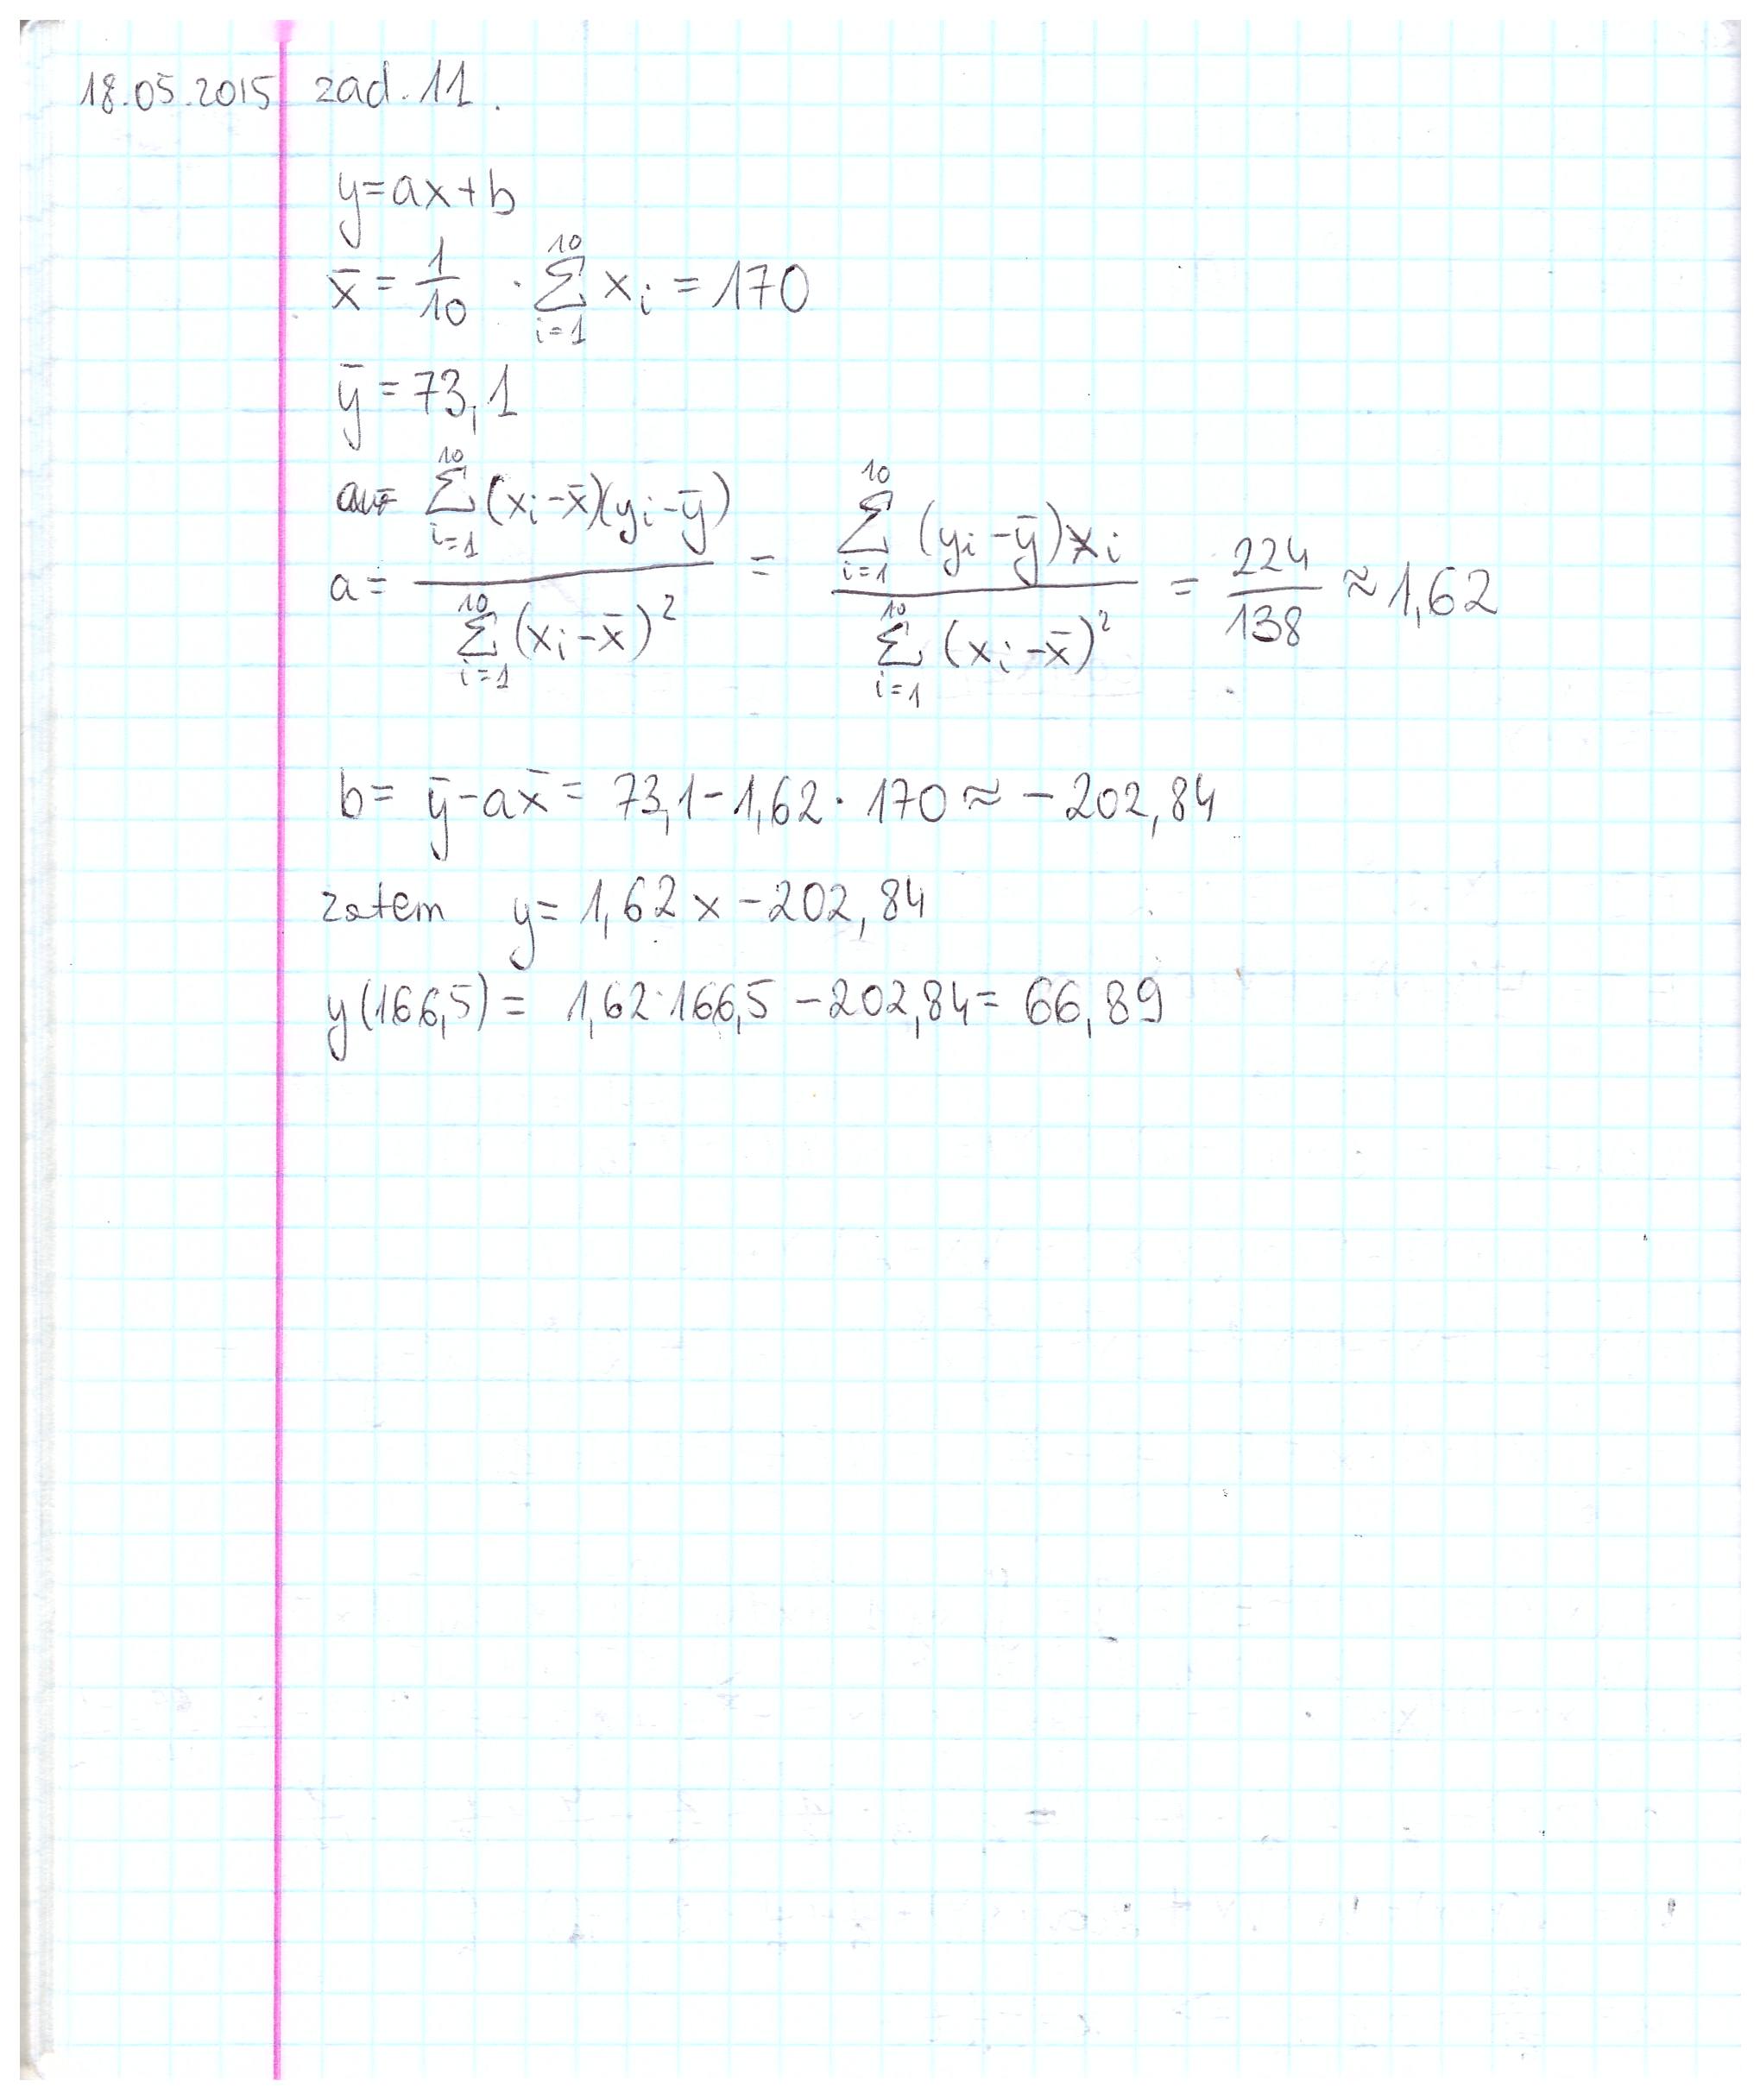 18.05.2015 zad. 11.
y=ax+b
x̄ = 1/10 · ∑_{i=1}^{10} x_i = 170
ȳ = 73,1
a = ∑_{i=1}^{10} (x_i - x̄)(y_i - ȳ) / ∑_{i=1}^{10} (x_i - x̄)² = ∑_{i=1}^{10} (y_i - ȳ) x_i / ∑_{i=1}^{10} (x_i - x̄)² = 224/138 ≈ 1,62
b = ȳ - a x̄ = 73,1 - 1,62 · 170 ≈ - 202,84
zatem y = 1,62 x - 202,84
y (166,5) = 1,62 · 166,5 - 202,84 = 66,89